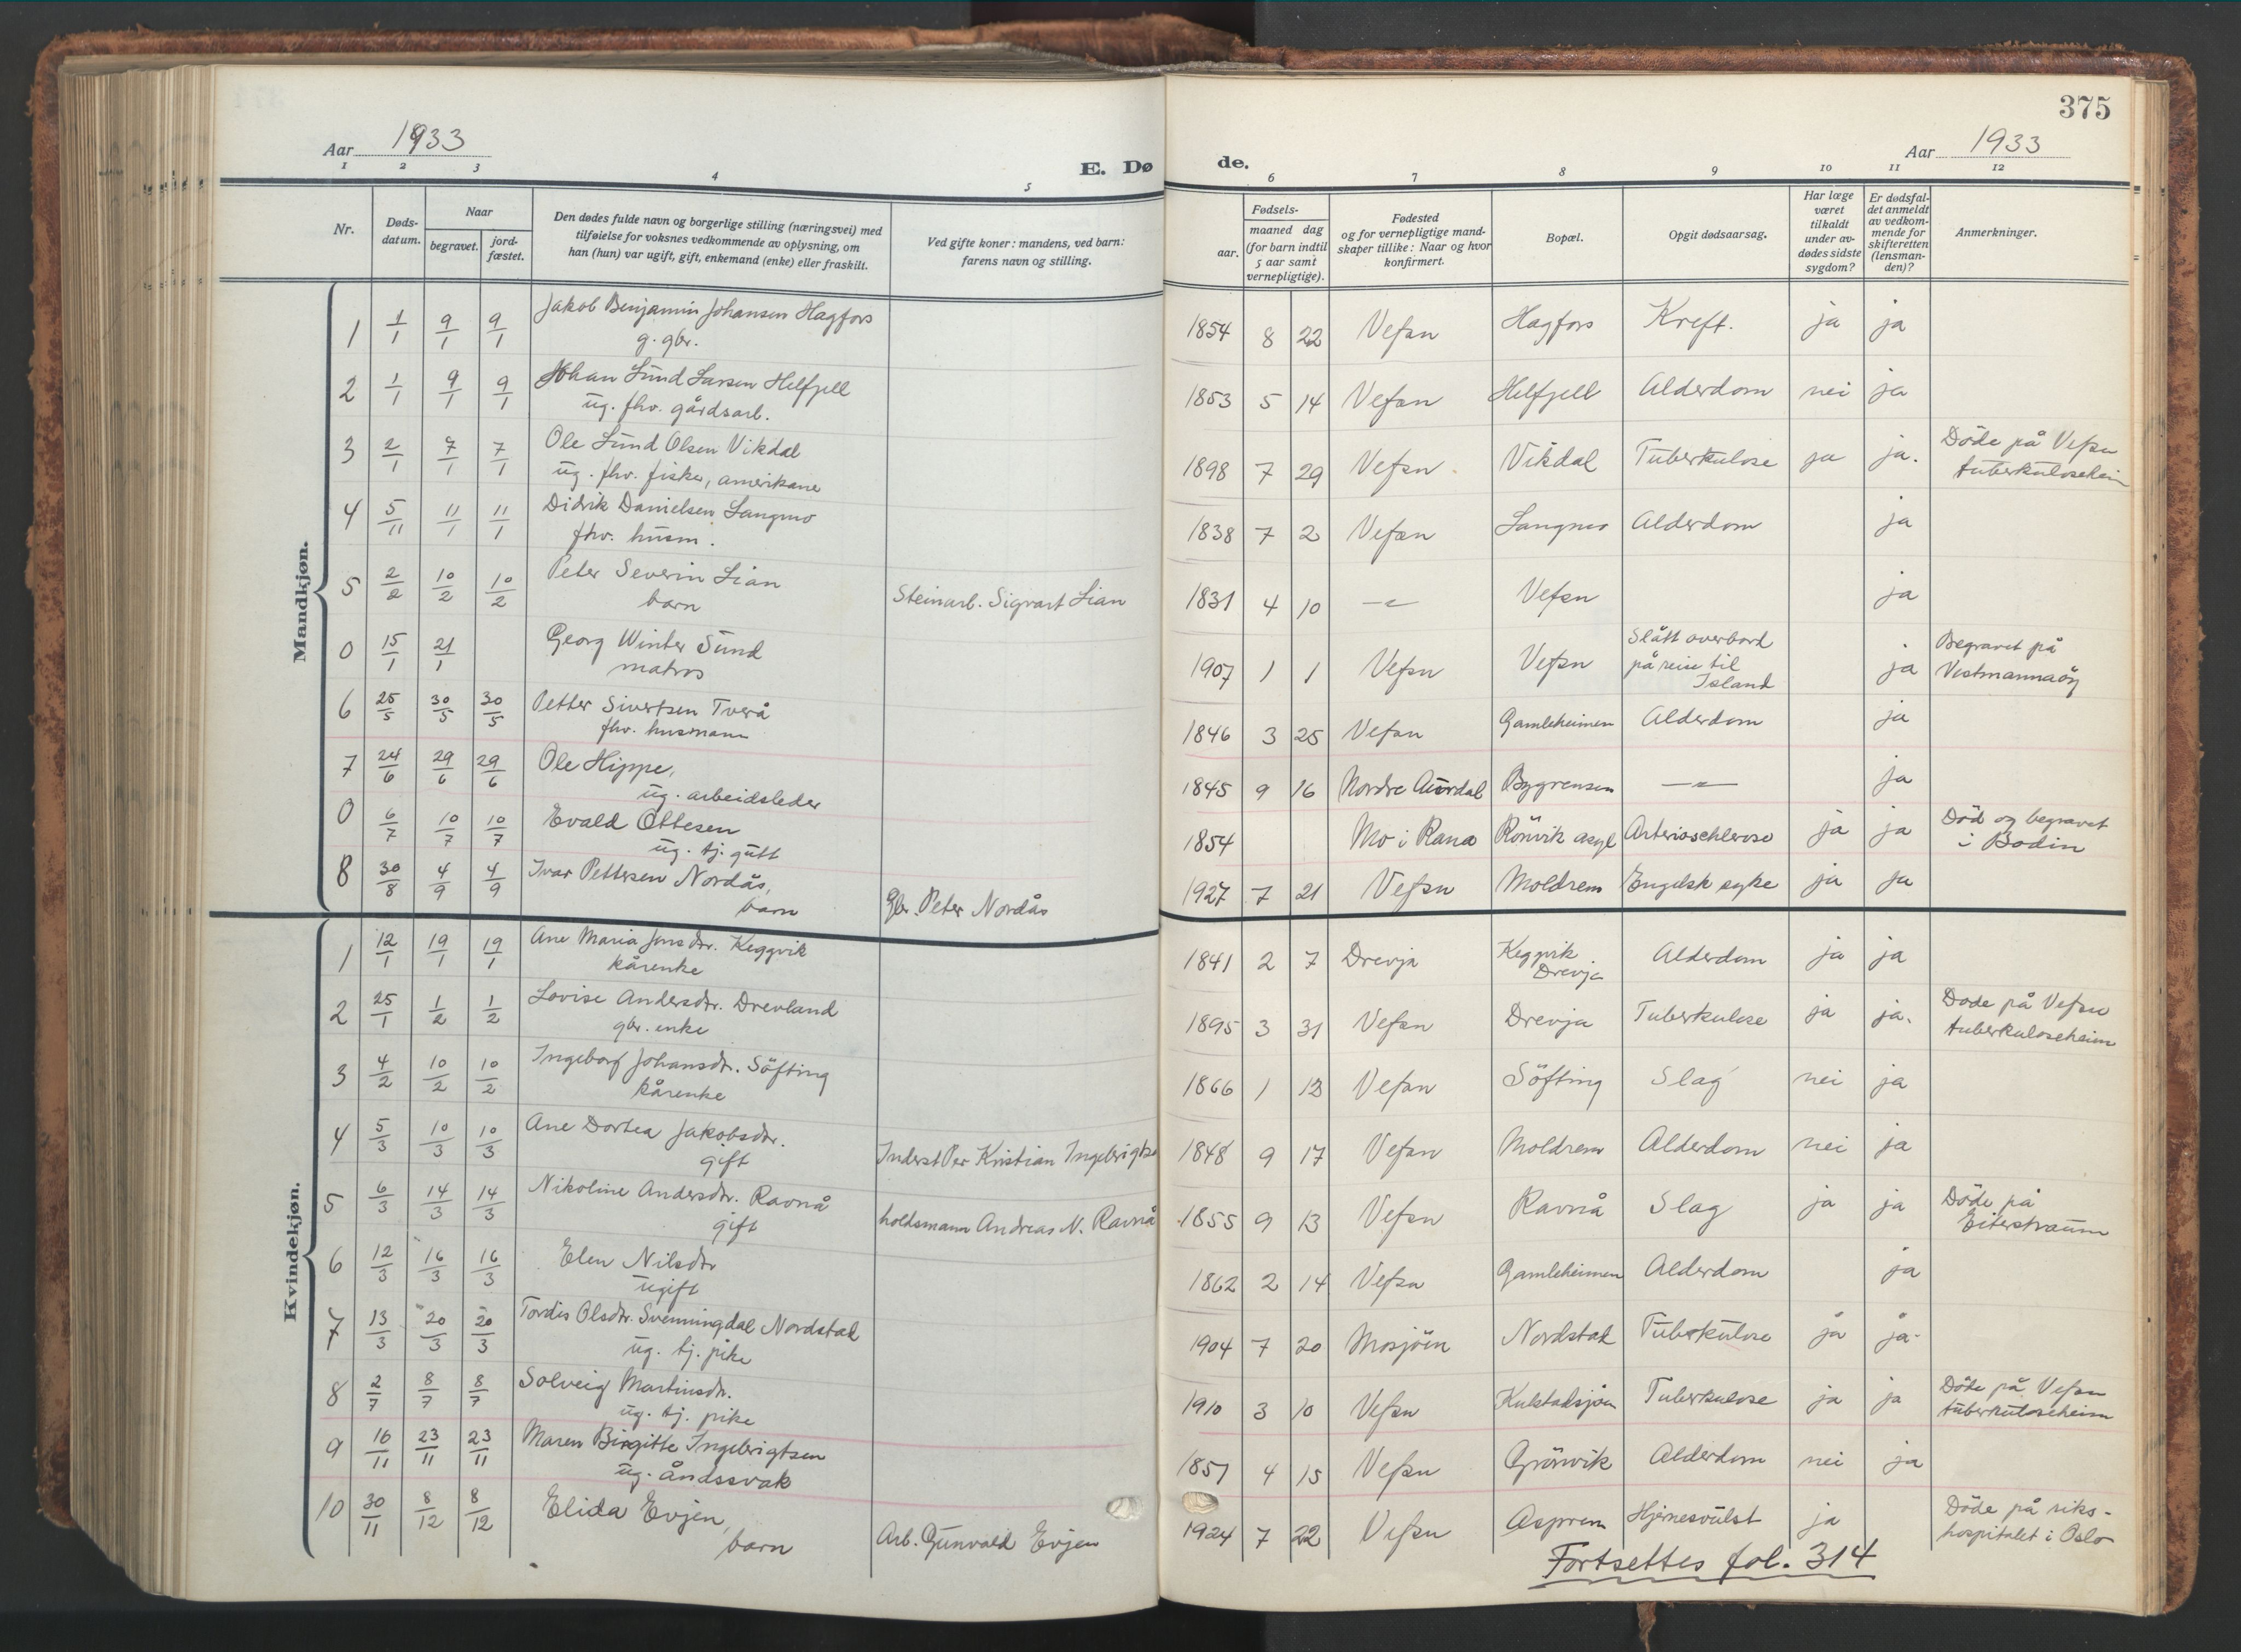 375
Aar 1933
E. Døde.
Aar 1933
1 2 3 4 5 6 7 8 9 10 11 12
Nr.
Døds-
datum.
Naar
begravet.
jord-
fæstet.
Den dødes fulde navn og borgerlige stilling (næringsvei) med
tilføielse for voksnes vedkommende av oplysning, om
han (hun) var ugift, gift, enkemand (enke) eller fraskilt.
Ved gifte koner: mandens, ved barn:
farens navn og stilling.
Fødsels-
aar.
maaned dag
(for barn indtil
5 aar samt
vernepligtige).
Fødested
og for vernepligtige mand-
skaper tillike: Naar og hvor
konfirmert.
Bopæl.
Opgit dødsaarsag.
Har læge
været
tilkaldt
under av-
dødes sidste
sygdom?
Er dødsfal-
det anmeldt
av vedkom-
mende for
skifteretten
(lensman-
den)?
Anmerkninger.
Mandkjøn.
1 1/1 9/1 9/1 Jakob Benjamin Johansen Hagfors 1854 8 22 Vefsn Hagfors Kreft. ja ja
g. gbr.
2 1/1 9/1 9/1 Johan Lund Larsen Helfjell 1853 5 14 Vefsn Helfjell Alderdom nei ja
ug. fhv. gårdsarb.
3 2/1 7/1 7/1 Ole Lund Olsen Vikdal 1898 7 29 Vefsn Vikdal Tuberkulose ja ja. Døde på Vefsn
ug. fhv. fisker, amerikaner tuberkuloseheim
4 5/11 11/1 11/1 Didrik Danielsen Langmo 1838 7 2 Vefsn Langmo Alderdom ja
fhv. husm.
5 2/2 10/2 10/2 Peter Severin Lian Steinarb. Sigvart Lian 1831 4 10 —"— Vefsn ja
barn
0 15/1 21/1 Georg Winter Sund 1907 1 1 Vefsn Vefsn Slått overbord ja Begravet på
matros på reise til Vestmannaöy
Island
6 25/5 30/5 30/5 Petter Sivertsen Tverå 1846 3 25 Vefsn Gamleheimen Alderdom ja
fhv. husmann
7 24/6 29/6 29/6 Ole Hippe, 1845 9 16 Nordre Aurdal Bygrensen —"— ja
ug. arbeidsleder
0 6/7 10/7 10/7 Evald Ottesen 1854 Mo i Rana Rönvik asyl Arterioschlerose ja ja Död og begravet
ug. tj. gutt i Bodin
8 30/8 4/9 4/9 Ivar Pettersen Nordås, Gbr. Peter Nordås 1927 7 21 Vefsn Moldrem Engelsk syke ja ja
barn
Kvindekjøn.
1 12/1 19/1 19/1 Ane Maria Jonsdtr. Keggvik 1841 2 7 Drevja Keggvik Alderdom ja ja
kårenke Drevja
2 25/1 1/2 1/2 Lovise Andersdtr. Drevland 1895 3 31 Vefsn Drevja Tuberkulose ja ja. Døde på Vefsn
gbr. enke tuberkuloseheim
3 4/2 10/2 10/2 Ingeborg Johansdtr. Söfting 1866 1 13 Vefsn Söfting Slag nei ja
kårenke
4 5/3 10/3 10/3 Ane Dortea Jakobsdtr. Inderst Per Kristian Ingebrigts 1848 9 17 Vefsn Moldrem Alderdom nei ja
gift
5 6/3 14/3 14/3 Nikoline Andersdtr. Ravnå holdsmann Andreas N. Ravnå 1855 9 13 Vefsn Ravnå Slag ja ja Döde på
gift Eiterstraum
6 12/3 16/3 16/3 Elen Nilsdtr 1862 2 14 Vefsn Gamleheimen Alderdom ja
ugift
7 13/3 20/3 20/3 Tordis Olsdtr. Svenningdal Nordstad 1904 7 20 Mosjöen Nordstad Tuberkulose ja ja-
ug. tj. pike
8 2/7 8/7 8/7 Solveig Martinsdtr. 1910 3 10 Vefsn Kulstadsjøen Tuberkulose ja ja Döde på Vefsn
ug. tj. pike tuberkuloseheim
9 16/11 23/11 23/11 Maren Birgitte Ingebrigtsen 1857 4 15 Vefsn Grönvik Alderdom nei ja
ug. åndssvak
10 30/11 8/12 8/12 Elida Evjen, Arb. Gunvald Evjen 1924 7 22 Vefsn Asprem Hjernesvulst ja Döde på riks-
barn hospitalet i Oslo
Fortsettes fol. 314